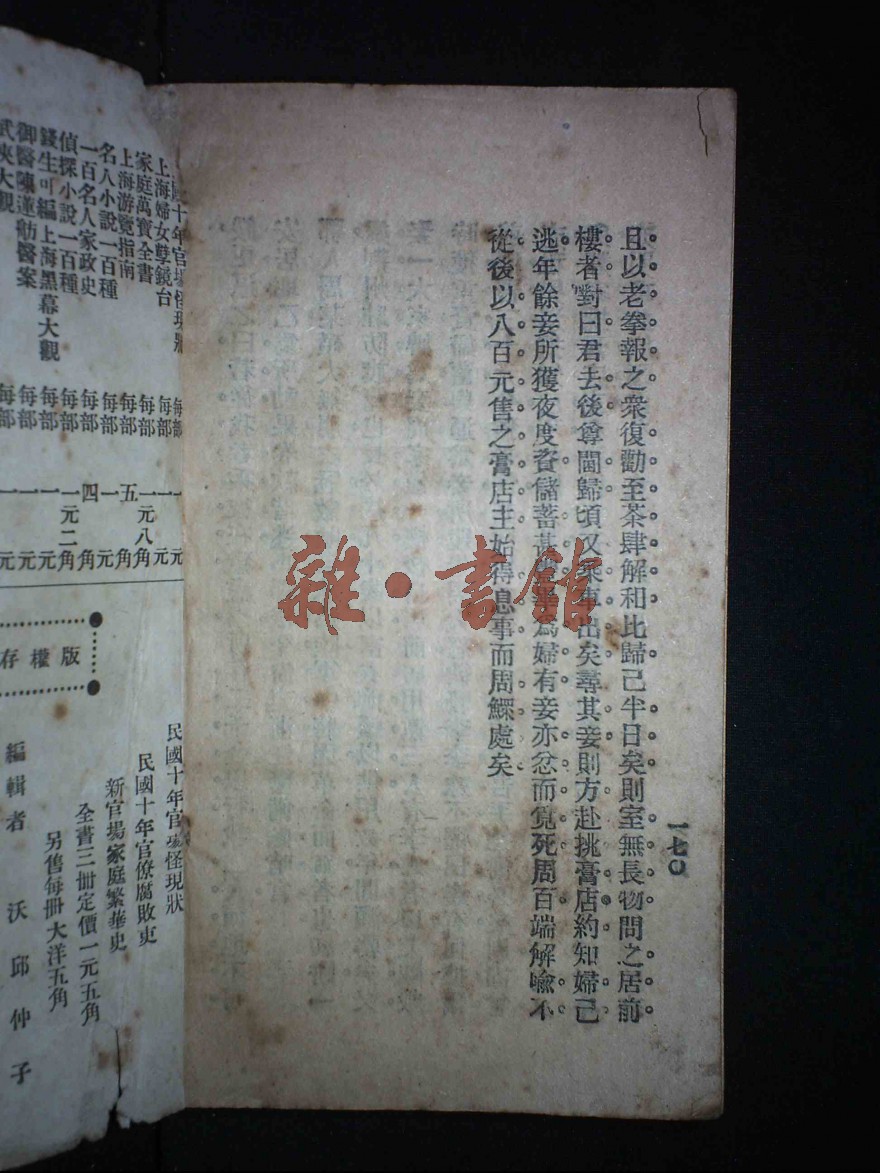 一七〇
且以老拳報之衆復勸至茶肆解和比歸已半日矣則室無長物問之居前
樓者對曰君去後尊閫歸頃又乘車出矣尋其妾則方赴挑膏店約知婦已
逃年餘妾所獲夜度資儲蓄甚 爲婦有妾亦忿而覓死周百端解喻不
從後以八百元售之膏店主始得息事而周鰥處矣
雜・書館
十年官場怪現狀 每部 一元
上海婦女孽鏡台 每部 一元
家庭萬寶全書 每部 一元八角
上海游覽指南 每部 五角
名人小說一百種 每部 一元
一百名人家政史 每部 四角
偵探小說一百種 每部 一元二角
錢生可編上海黑幕大觀 每部 一元
御醫陳蓮舫醫案 每部 一元
武俠大觀 每部 一元
版權存
民國十年官場怪現狀
民國十年官僚腐敗史
新官場家庭繁華史
全書三冊定價一元五角
另售每冊大洋五角
編輯者 沃邱仲子